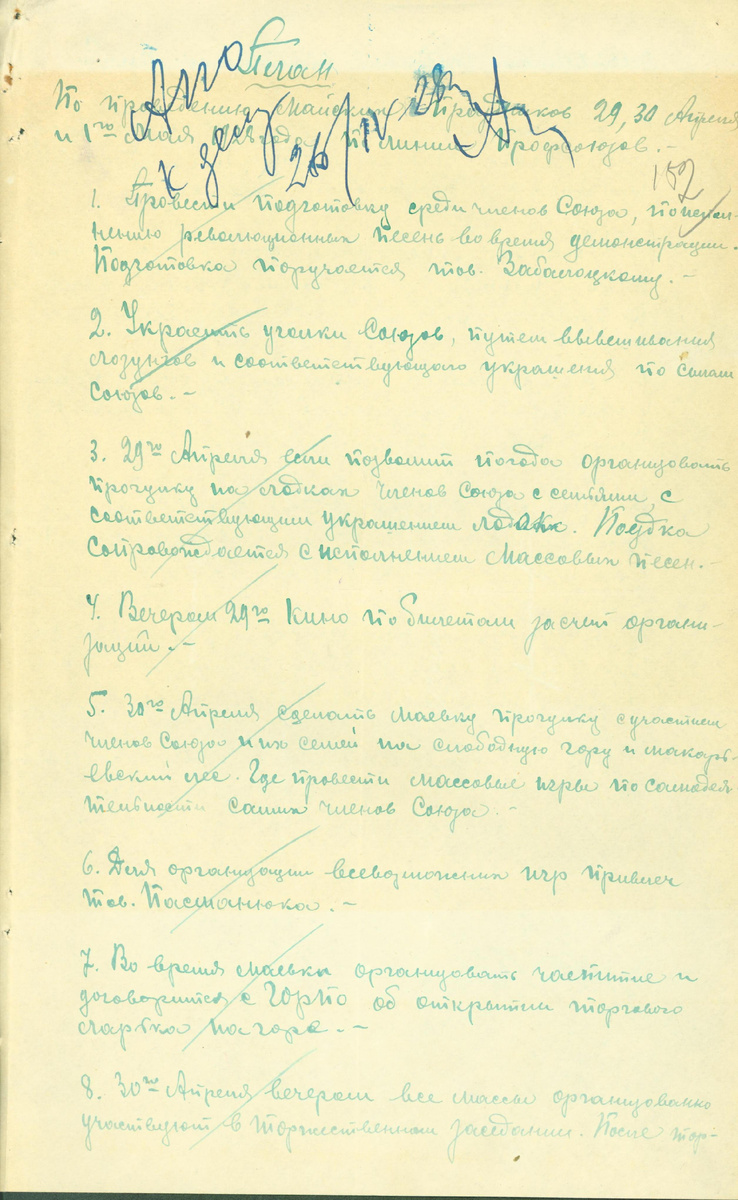 План
По проведению Майских Праздников 29, 30 Апреля
и 1го мая 28 года по линии Профсоюзов. –
к делу
26/IV 28г
152
1. Провести подготовку среди членов Союза, по испол-
нению революционных песень во время демонстрации.
Подготовка поручается тов. Забалоцкому. –
2. Украсить уголки Союзов, путем вывешивания
лозунгов и соответствующего украшения по силам
Союзов. –
3. 29го Апреля если позволит погода организовать
прогулку на лодках членов Союза с семьями, с
соответствующим украшением лодок. Поездка
сопровождается с исполнением массовых песен. –
4. Вечером 29го Кино по билетам за счет органи-
заций. –
5. 30го Апреля сделать маевку прогулку с участием
членов Союза и их семей на слободную гору и макарь-
евский лес. Где провести массовые игры по самодея-
тельности самих членов Союза. –
6. Для организации всевозможных игр привлеч
тов. Пасманюка. –
7. Во время маевки организовать чаепитие и
договорится с ГОРПО об открытии торгового
ларька на горе. –
8. 30го Апреля вечером все массы организованно
участвуют в торжественном заседании. После тор-